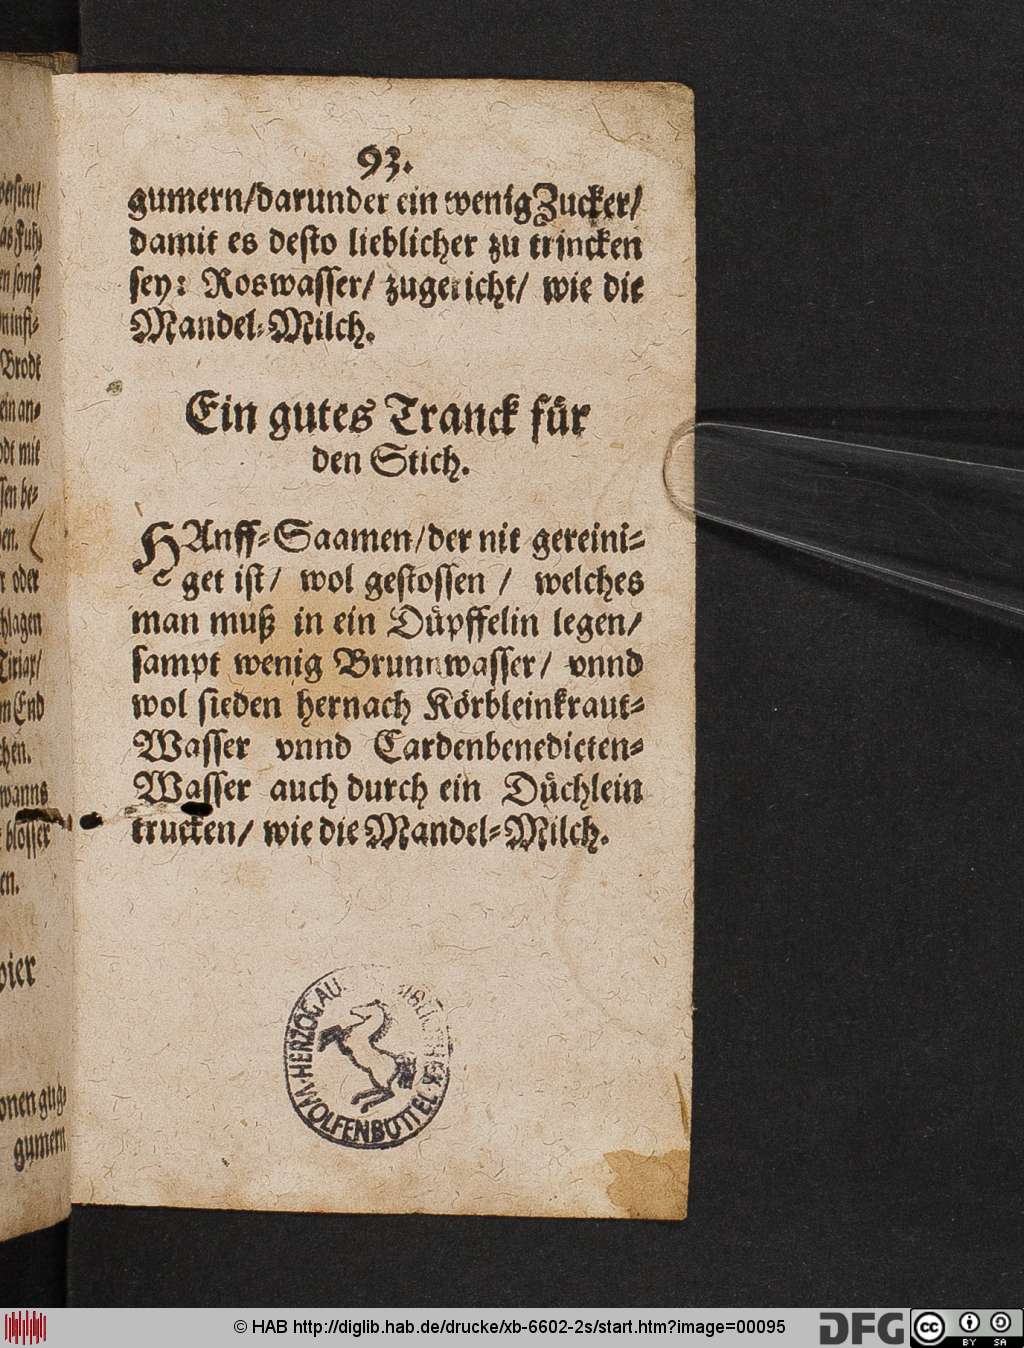 93.
gumern/darunder ein wenig Zucker/
damit es desto lieblicher zu trincken
sey: Roswasser/ zugericht/ wie die
Mandel-Milch.
Ein gutes Tranck für
den Stich.
HAnff-Saamen/der nit gereini-
get ist/ wol gestossen / welches
man muß in ein Düpffelin legen/
sampt wenig Brunnwasser/ vnnd
wol sieden hernach Körbleinkraut-
Wasser vnnd Cardenbenedicten-
Wasser auch durch ein Düchlein
trucken/ wie die Mandel-Milch.
HERZOGAU
WOLFENBÜTTEL
as Fuh-
en sonst
Brodt
ein an-
odt mit
sen be-
r oder
hlagen
Tiriax/
m End
chen.
wanns
blosser
en.
pier
onen gug-
gumern
© HAB http://diglib.hab.de/drucke/xb-6602-2s/start.htm?image=00095
DFG
cc
BY SA